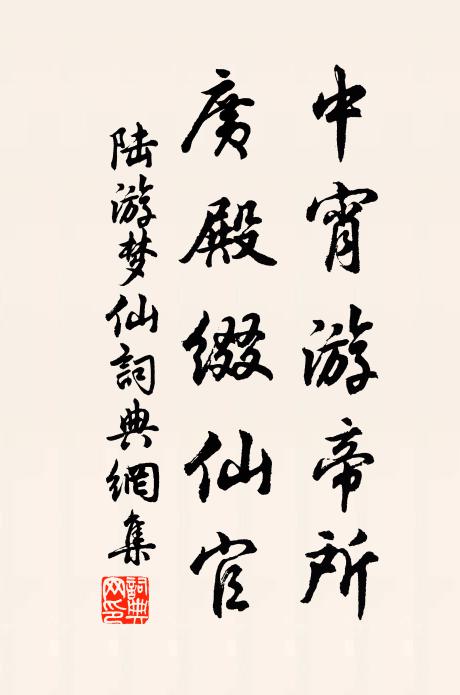 中宵游帝所
廣殿綴仙官
陆游梦仙詞典網集
詞典网印